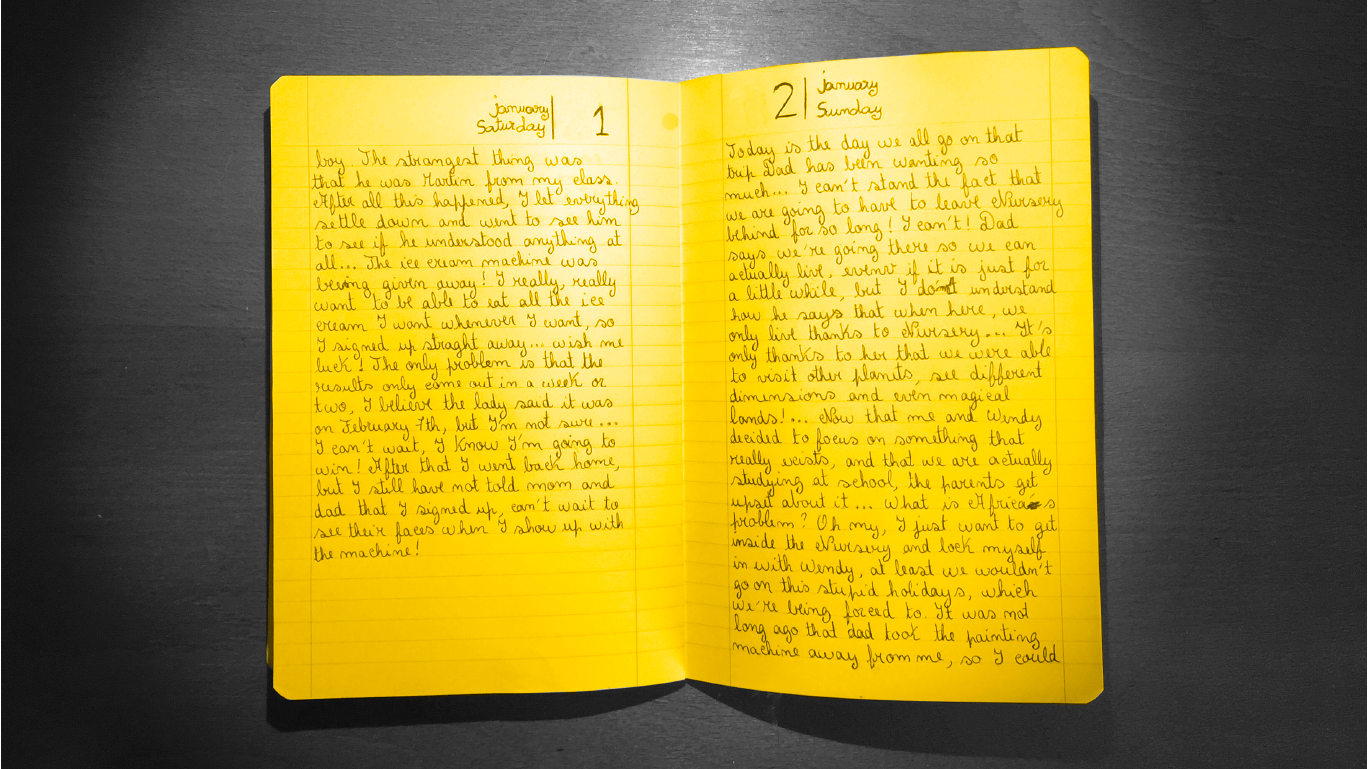 january
Saturday
1
boy. The strangest thing was
that he was Martin from my class.
After all this happened, I let everything
settle down and went to see him
to see if he understood anything at
all... The ice cream machine was
being given away! I really, really
want to be able to eat all the ice
cream I want whenever I want, so
I signed up straght away... wish me
luck! The only problem is that the
results only come out in a week or
two, I believe the lady said it was
on February 7th, but I'm not sure...
I can't wait, I know I'm going to
win! After that I went back home,
but I still have not told mom and
dad that I signed up, can't wait to
see their faces when I show up with
the machine!
2
january
Sunday
Today is the day we all go on that
trip Dad has been wanting so
much... I can't stand the fact that
we are going to have to leave Nursery
behind for so long! I can't! Dad
says we're going there so we can
actually live, even if it is just for
a little while, but I don't understand
how he says that when here, we
only live thanks to Nursery... It's
only thanks to her that we were able
to visit other planits, see different
dimensions and even magical
lands!... Now that me and Wendy
decided to focus on something that
really exists, and that we are actually
studying at school, the parents get
upset about it... What is Africa's
problem? Oh my, I just want to get
inside the Nursery and lock myself
in with Wendy, at least we wouldn't
go on this stupid holidays, which
we're being forced to. It was not
long ago that dad took the painting
machine away from me, so I could